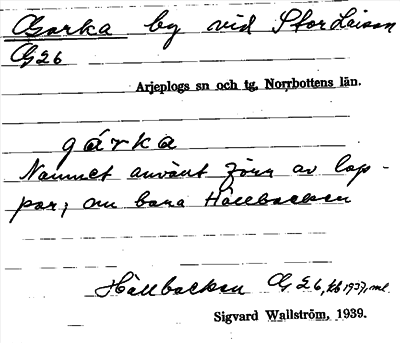 Garka by vid Stor Laisan
G 26
Arjeplogs sn och tg, Norrbottens län.
gárka
Namnet använt förr av lap-
par, nu bara Hällbacken
Hällbacken G 26, tb 1937, ml.
Sigvard Wallström, 1939.